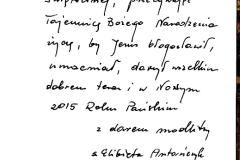 Tajemnicę Bożego Narodzenia
życzę, by Jezus błogosławił,
umacniał, darzył wszelkim
dobrem teraz i w Nowym
2015 Roku Pańskim
z darem modlitwy
s. Elżbieta